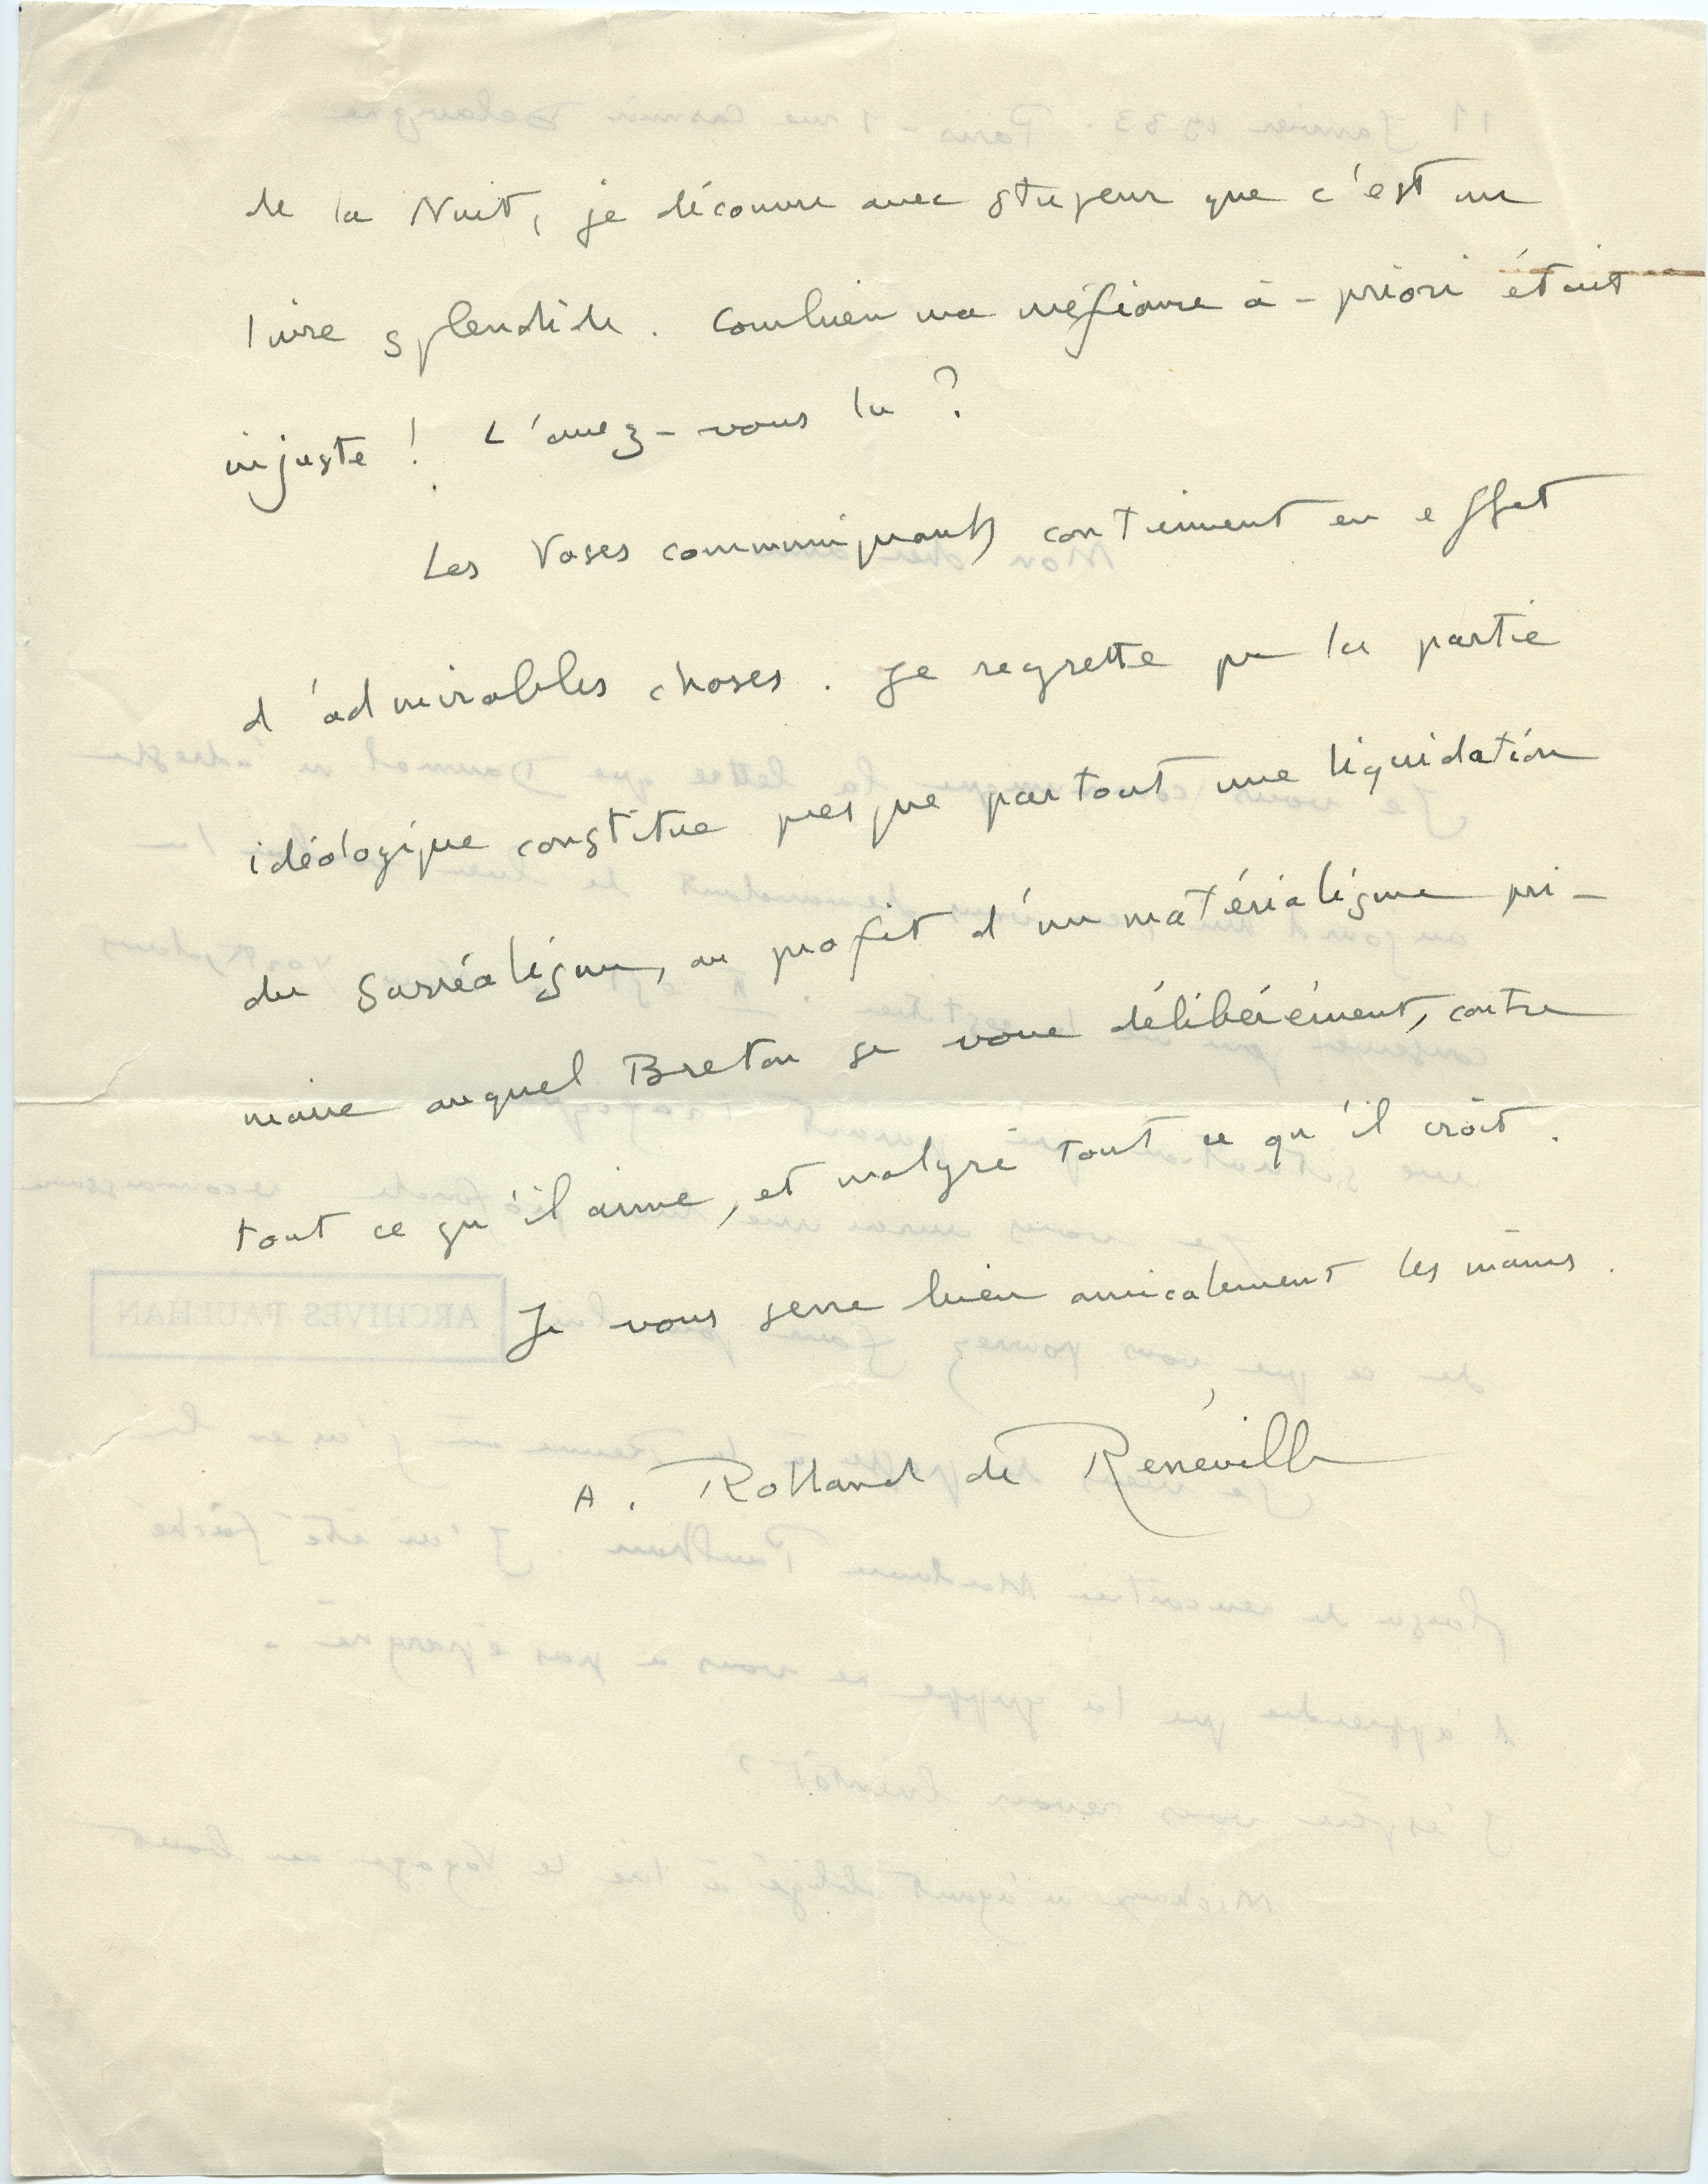 de la Nuit, je découvre avec stupeur que c'est un
livre splendide. Combien ma méfiance à-priori était
injuste ! L'avez-vous lu ?
Les Vases communiquants contiennent en effet
d'admirables choses. Je regrette que la partie
idéologique constitue presque partout une liquidation
du surréalisme, au profit d'un matérialisme pri-
maire auquel Breton se voue délibérément, contre
tout ce qu'il aime, et malgré tout ce qu'il croit.
Je vous serre bien amicalement les mains.
A. Rolland de Renéville
ARCHIVES PAULHAN